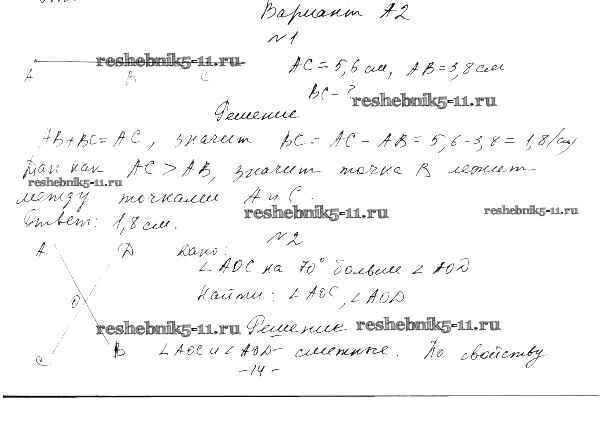 Вариант А2
№1
reshebnik5-11.ru
A B C
AC = 5,6 см, AB = 3,8 см
BC - ?
reshebnik5-11.ru
Решение
AB + BC = AC, значит BC = AC - AB = 5,6 - 3,8 = 1,8 (см)
Так как AC > AB, значит точка B лежит
reshebnik5-11.ru
между точками A и C.
reshebnik5-11.ru
reshebnik5-11.ru
Ответ: 1,8 см.
№2
A D Дано:
∠AOC на 70° больше ∠AOD
O Найти: ∠AOC, ∠AOD
reshebnik5-11.ru Решение reshebnik5-11.ru
C B ∠AOC и ∠AOD - смежные. По свойству
-14-